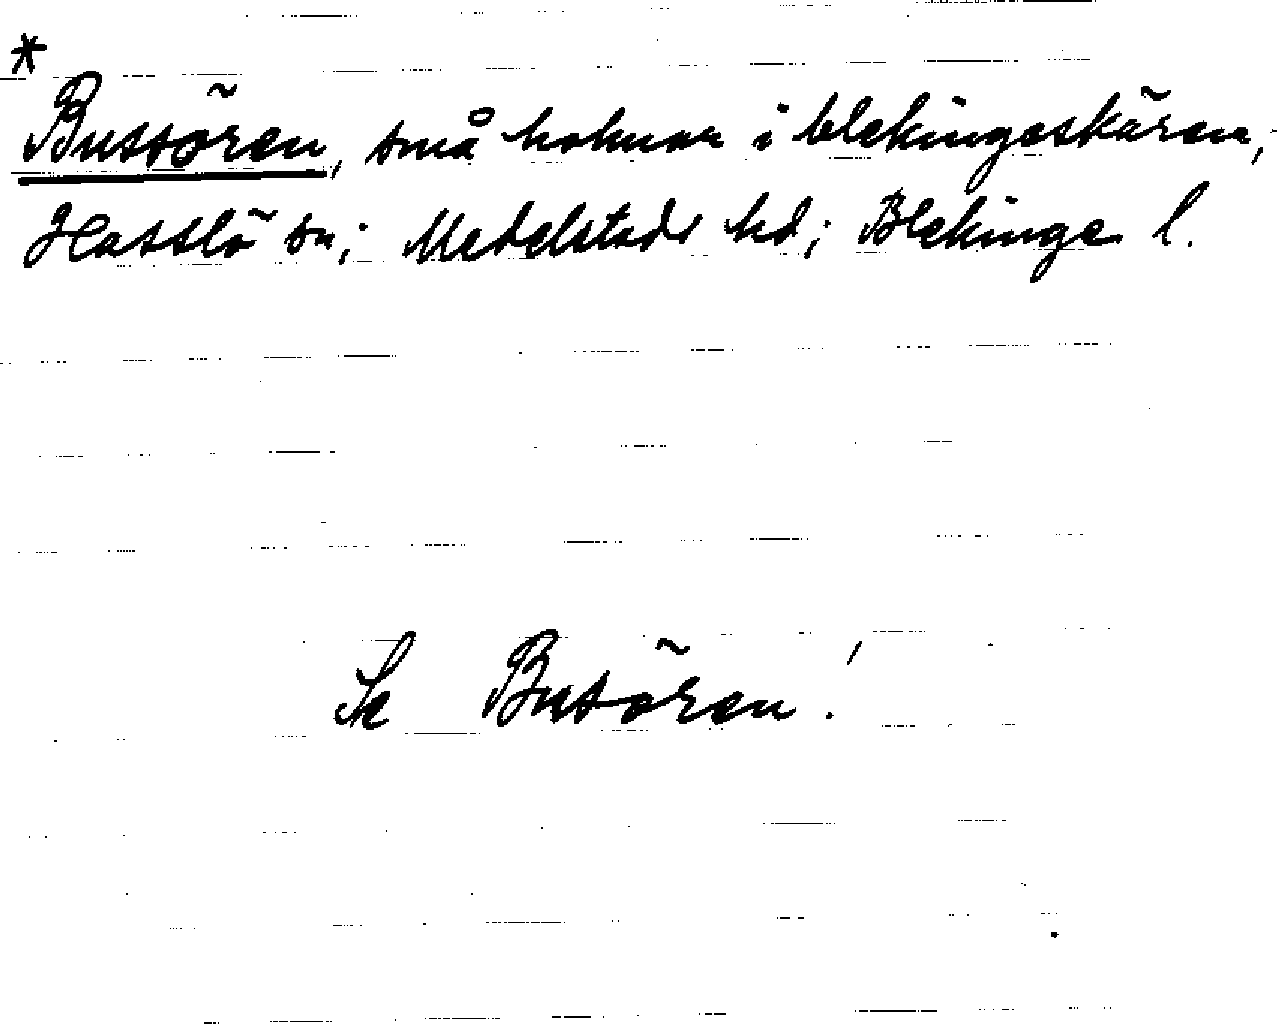 *
Bussören, små holmar i blekingeskären,
Hasslö sn; Medelstads hd; Blekinge l.
Se Busören!